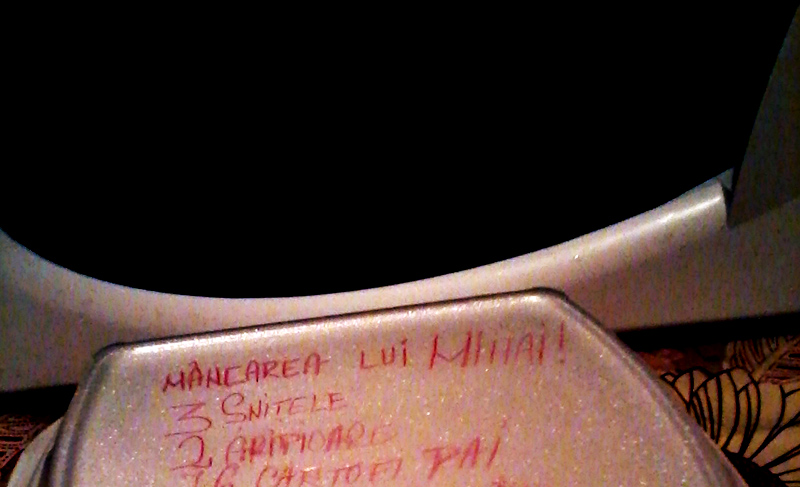 MÂNCAREA LUI MIHAI!
3 SNITELE
2 ARIPIOARE
CARTOFI PAI